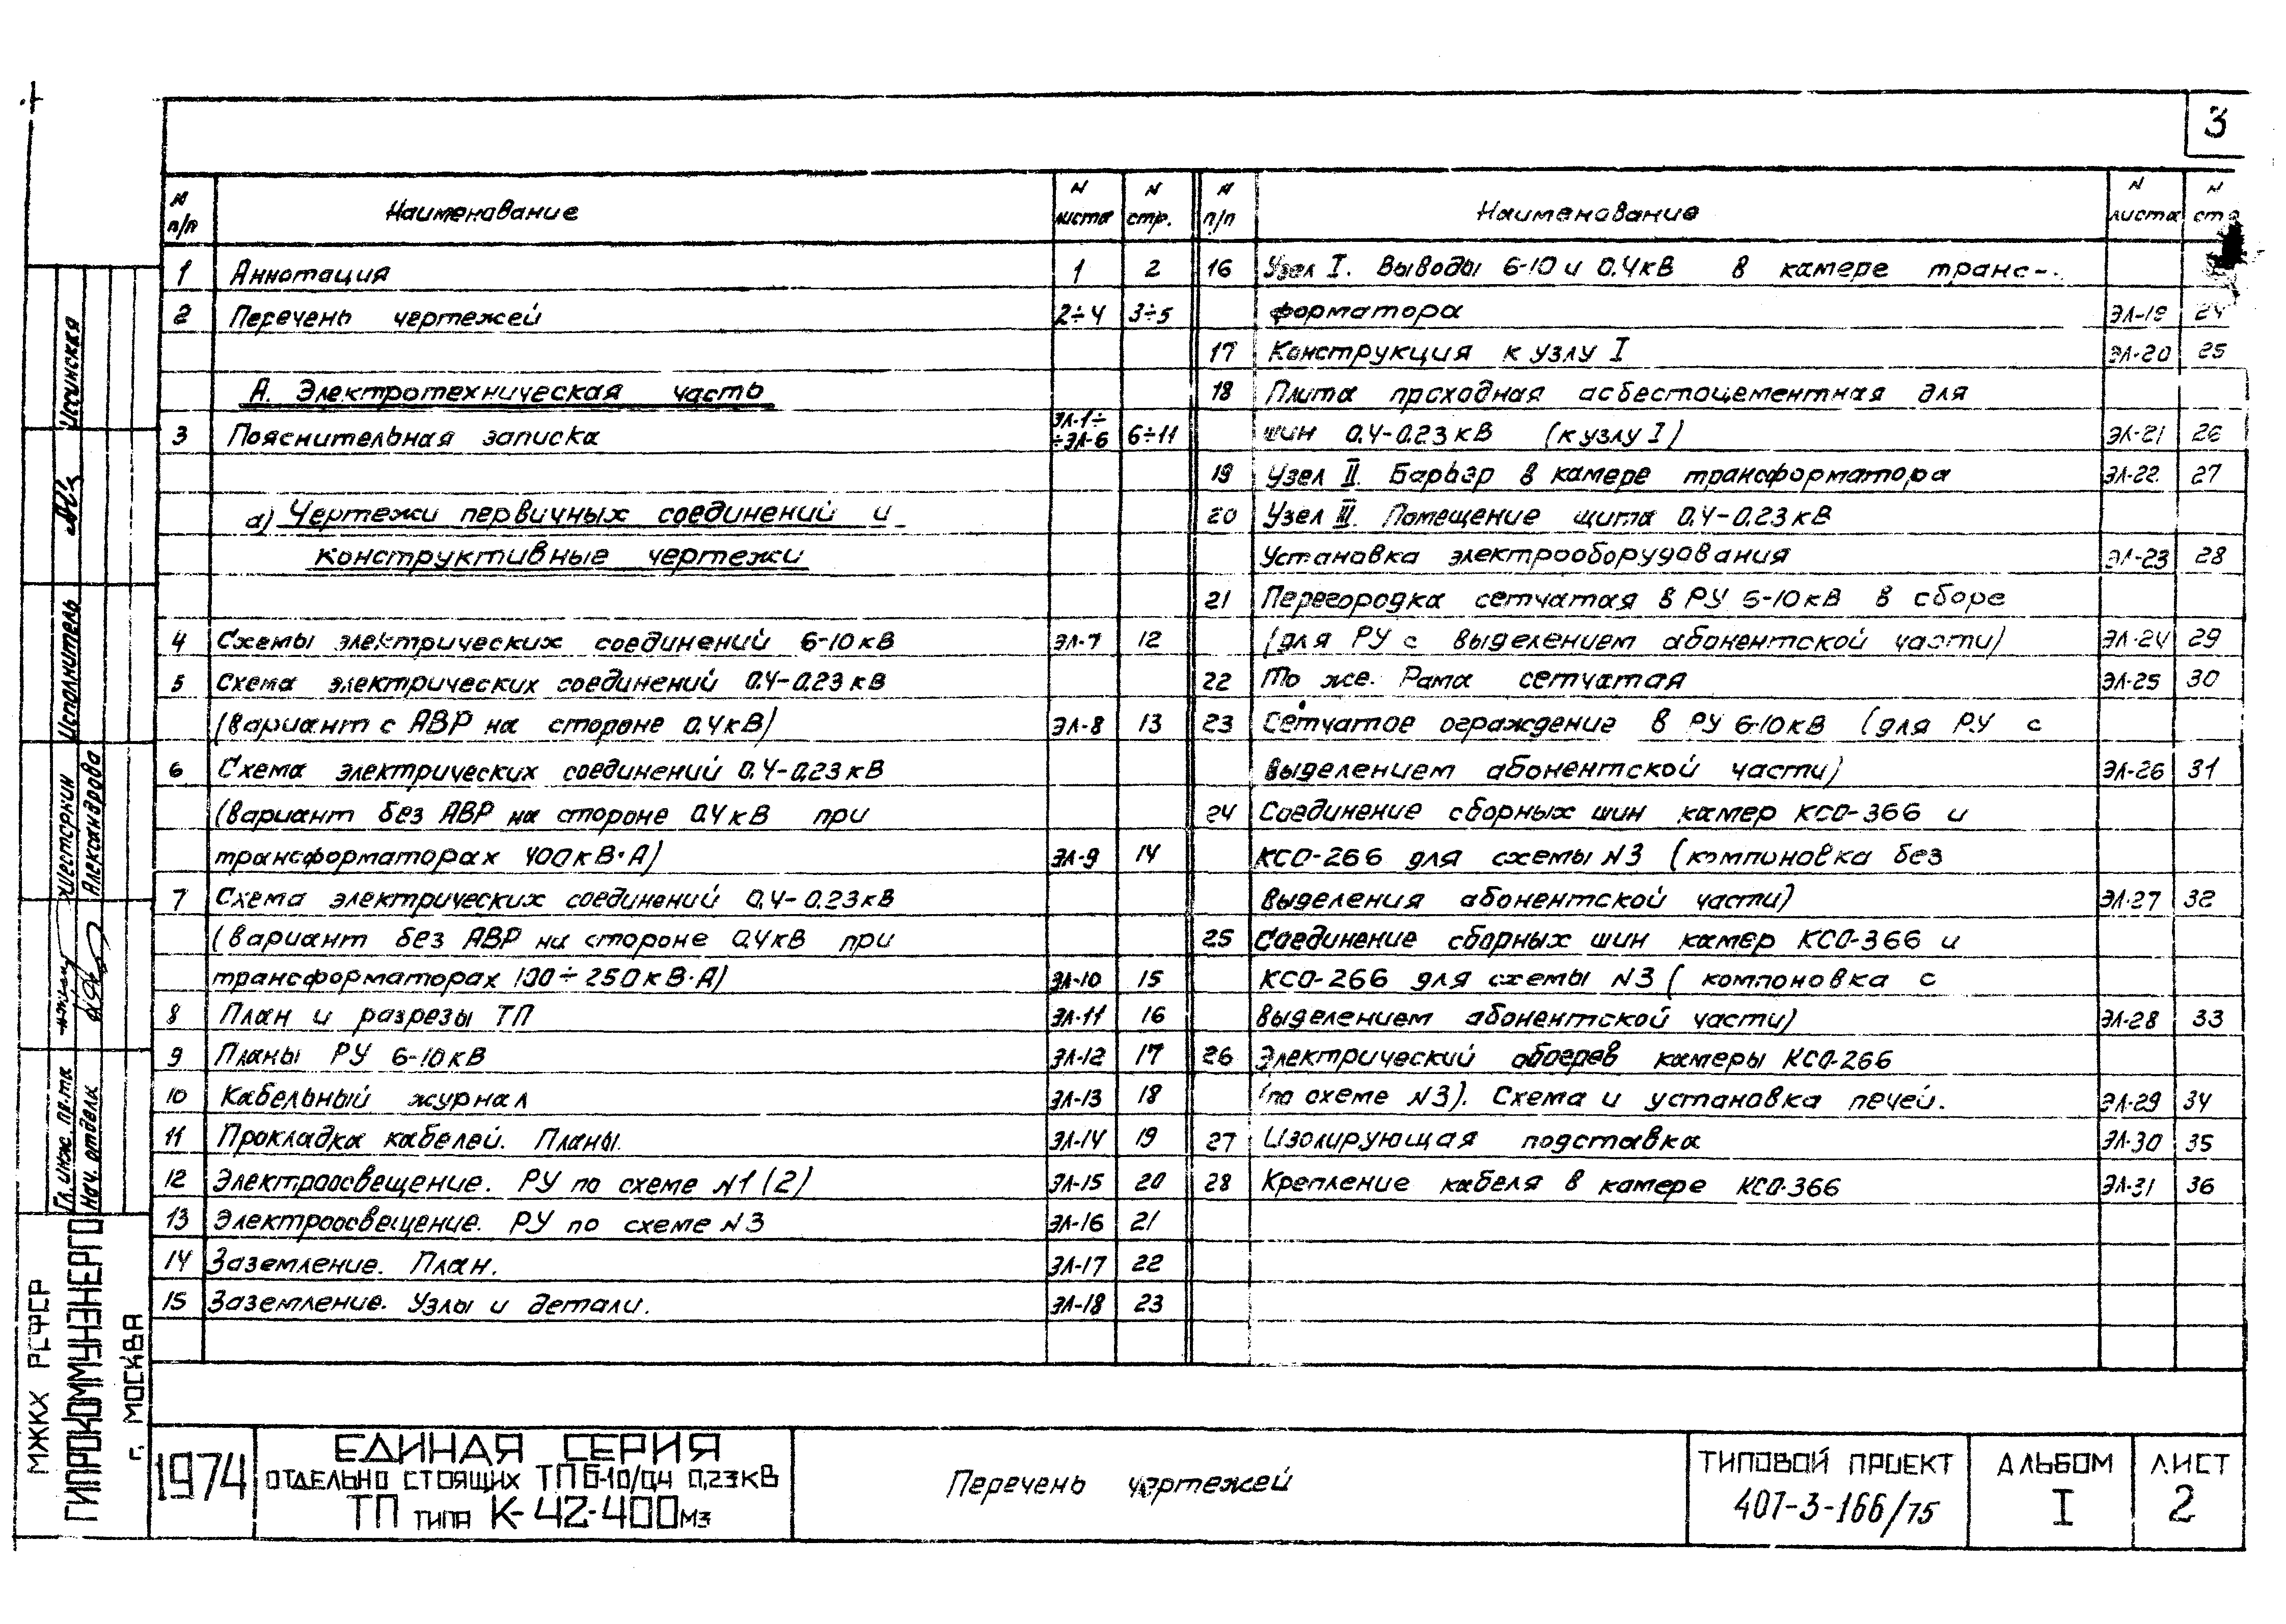 3
N п/п Наименование N листа N стр.
1 Аннотация 1 2
2 Перечень чертежей 2÷4 3÷5
А. Электротехническая часть
3 Пояснительная записка ЭЛ-1÷÷ЭЛ-6 6÷11
а) Чертежи первичных соединений и
конструктивные чертежи
4 Схемы электрических соединений 6-10кВ ЭЛ-7 12
5 Схема электрических соединений 0.4-0.23кВ
(вариант с АВР на стороне 0.4кВ) ЭЛ-8 13
6 Схема электрических соединений 0.4-0.23кВ
(вариант без АВР на стороне 0.4кВ при
трансформаторах 400кВ·А) ЭЛ-9 14
7 Схема электрических соединений 0.4-0.23кВ
(вариант без АВР на стороне 0.4кВ при
трансформаторах 100÷250кВ·А) ЭЛ-10 15
8 План и разрезы ТП ЭЛ-11 16
9 Планы РУ 6-10кВ ЭЛ-12 17
10 Кабельный журнал ЭЛ-13 18
11 Прокладка кабелей. Планы. ЭЛ-14 19
12 Электроосвещение. РУ по схеме N1(2) ЭЛ-15 20
13 Электроосвещение. РУ по схеме N3 ЭЛ-16 21
14 Заземление. План. ЭЛ-17 22
15 Заземление. Узлы и детали. ЭЛ-18 23
N п/п Наименование N листа N
16 Узел I. Выводы 6-10 и 0.4кВ в камере транс-
форматора ЭЛ-19 24
17 Конструкция к узлу I ЭЛ-20 25
18 Плита проходная асбестоцементная для
шин 0.4-0.23кВ (к узлу I) ЭЛ-21 26
19 Узел II. Барьер в камере трансформатора ЭЛ-22 27
20 Узел III. Помещение щита 0.4-0.23кВ
Установка электрооборудования ЭЛ-23 28
21 Перегородка сетчатая в РУ 6-10кВ в сборе
(для РУ с выделением абонентской части) ЭЛ-24 29
22 То же. Рама сетчатая ЭЛ-25 30
23 Сетчатое ограждение в РУ 6-10кВ (для РУ с
выделением абонентской части) ЭЛ-26 31
24 Соединение сборных шин камер КСО-366 и
КСО-266 для схемы N3 (компоновка без
выделения абонентской части) ЭЛ-27 32
25 Соединение сборных шин камер КСО-366 и
КСО-266 для схемы N3 (компоновка с
выделением абонентской части) ЭЛ-28 33
26 Электрический обогрев камеры КСО-266
(по схеме N3). Схема и установка печей. ЭЛ-29 34
27 Изолирующая подставка ЭЛ-30 35
28 Крепление кабеля в камере КСО-366 ЭЛ-31 36
МЖКХ РСФСР
ГИПРОКОММУНЭНЕРГО
г. МОСКВА
Гл. инж. пр-та Шестеркин
Нач. отдела Александрова
Исполнитель
1974
ЕДИНАЯ СЕРИЯ
ОТДЕЛЬНО СТОЯЩИХ ТП 6-10/0,4 0,23КВ
ТП ТИПА К-42-400М3
Перечень чертежей
ТИПОВОЙ ПРОЕКТ
407-3-166/75
АЛЬБОМ
I
ЛИСТ
2